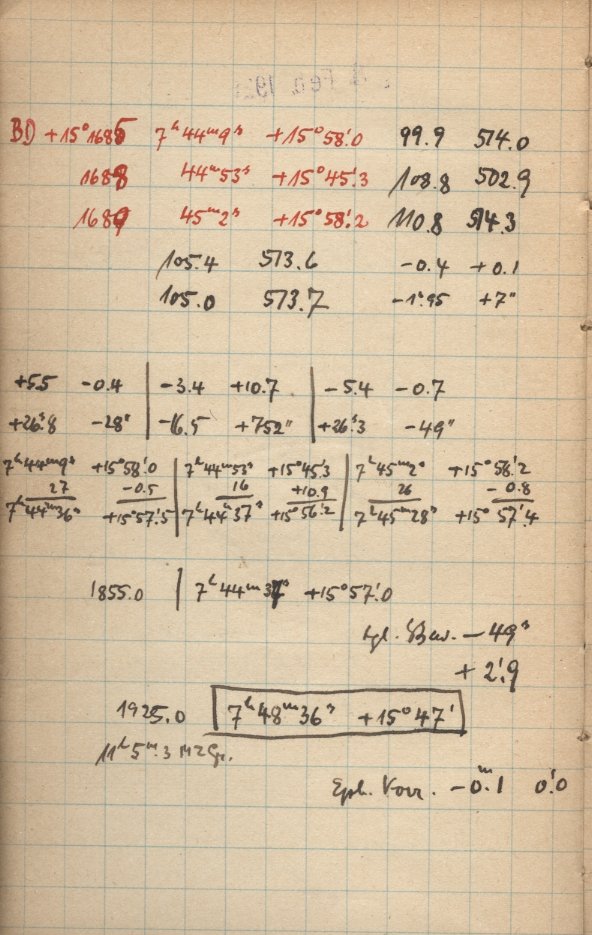 BD +15°1685 7ʰ44ᵐ9ˢ +15°58'.0 99.9 514.0
1688 44ᵐ53ˢ +15°45'.3 108.8 502.9
1689 45ᵐ2ˢ +15°58'.2 110.8 514.3
105.4 513.6 -0.4 +0.1
105.0 513.7 -1ˢ.95 +7"
+5.5 -0.4 | -3.4 +10.7 | -5.4 -0.7
+26ˢ.8 -28" | -16.5 +752" | +26ˢ.3 -49"
7ʰ44ᵐ9ˢ +15°58'.0 | 7ʰ44ᵐ53ˢ +15°45'.3 | 7ʰ45ᵐ2ˢ +15°58'.2
27 -0.5 | 16 +10.9 | 26 -0.8
7ʰ44ᵐ36ˢ +15°57'.5 | 7ʰ44ᵐ37ˢ +15°56'.2 | 7ʰ45ᵐ28ˢ +15°57'.4
1855.0 | 7ʰ44ᵐ37ˢ +15°57'.0
tgl. Bew. -49ˢ
+2'.9
1925.0 7ʰ48ᵐ36ˢ +15°47'
11ʰ5ᵐ.3 MZGr.
Eph. Korr. -0ᵐ.1 0'.0